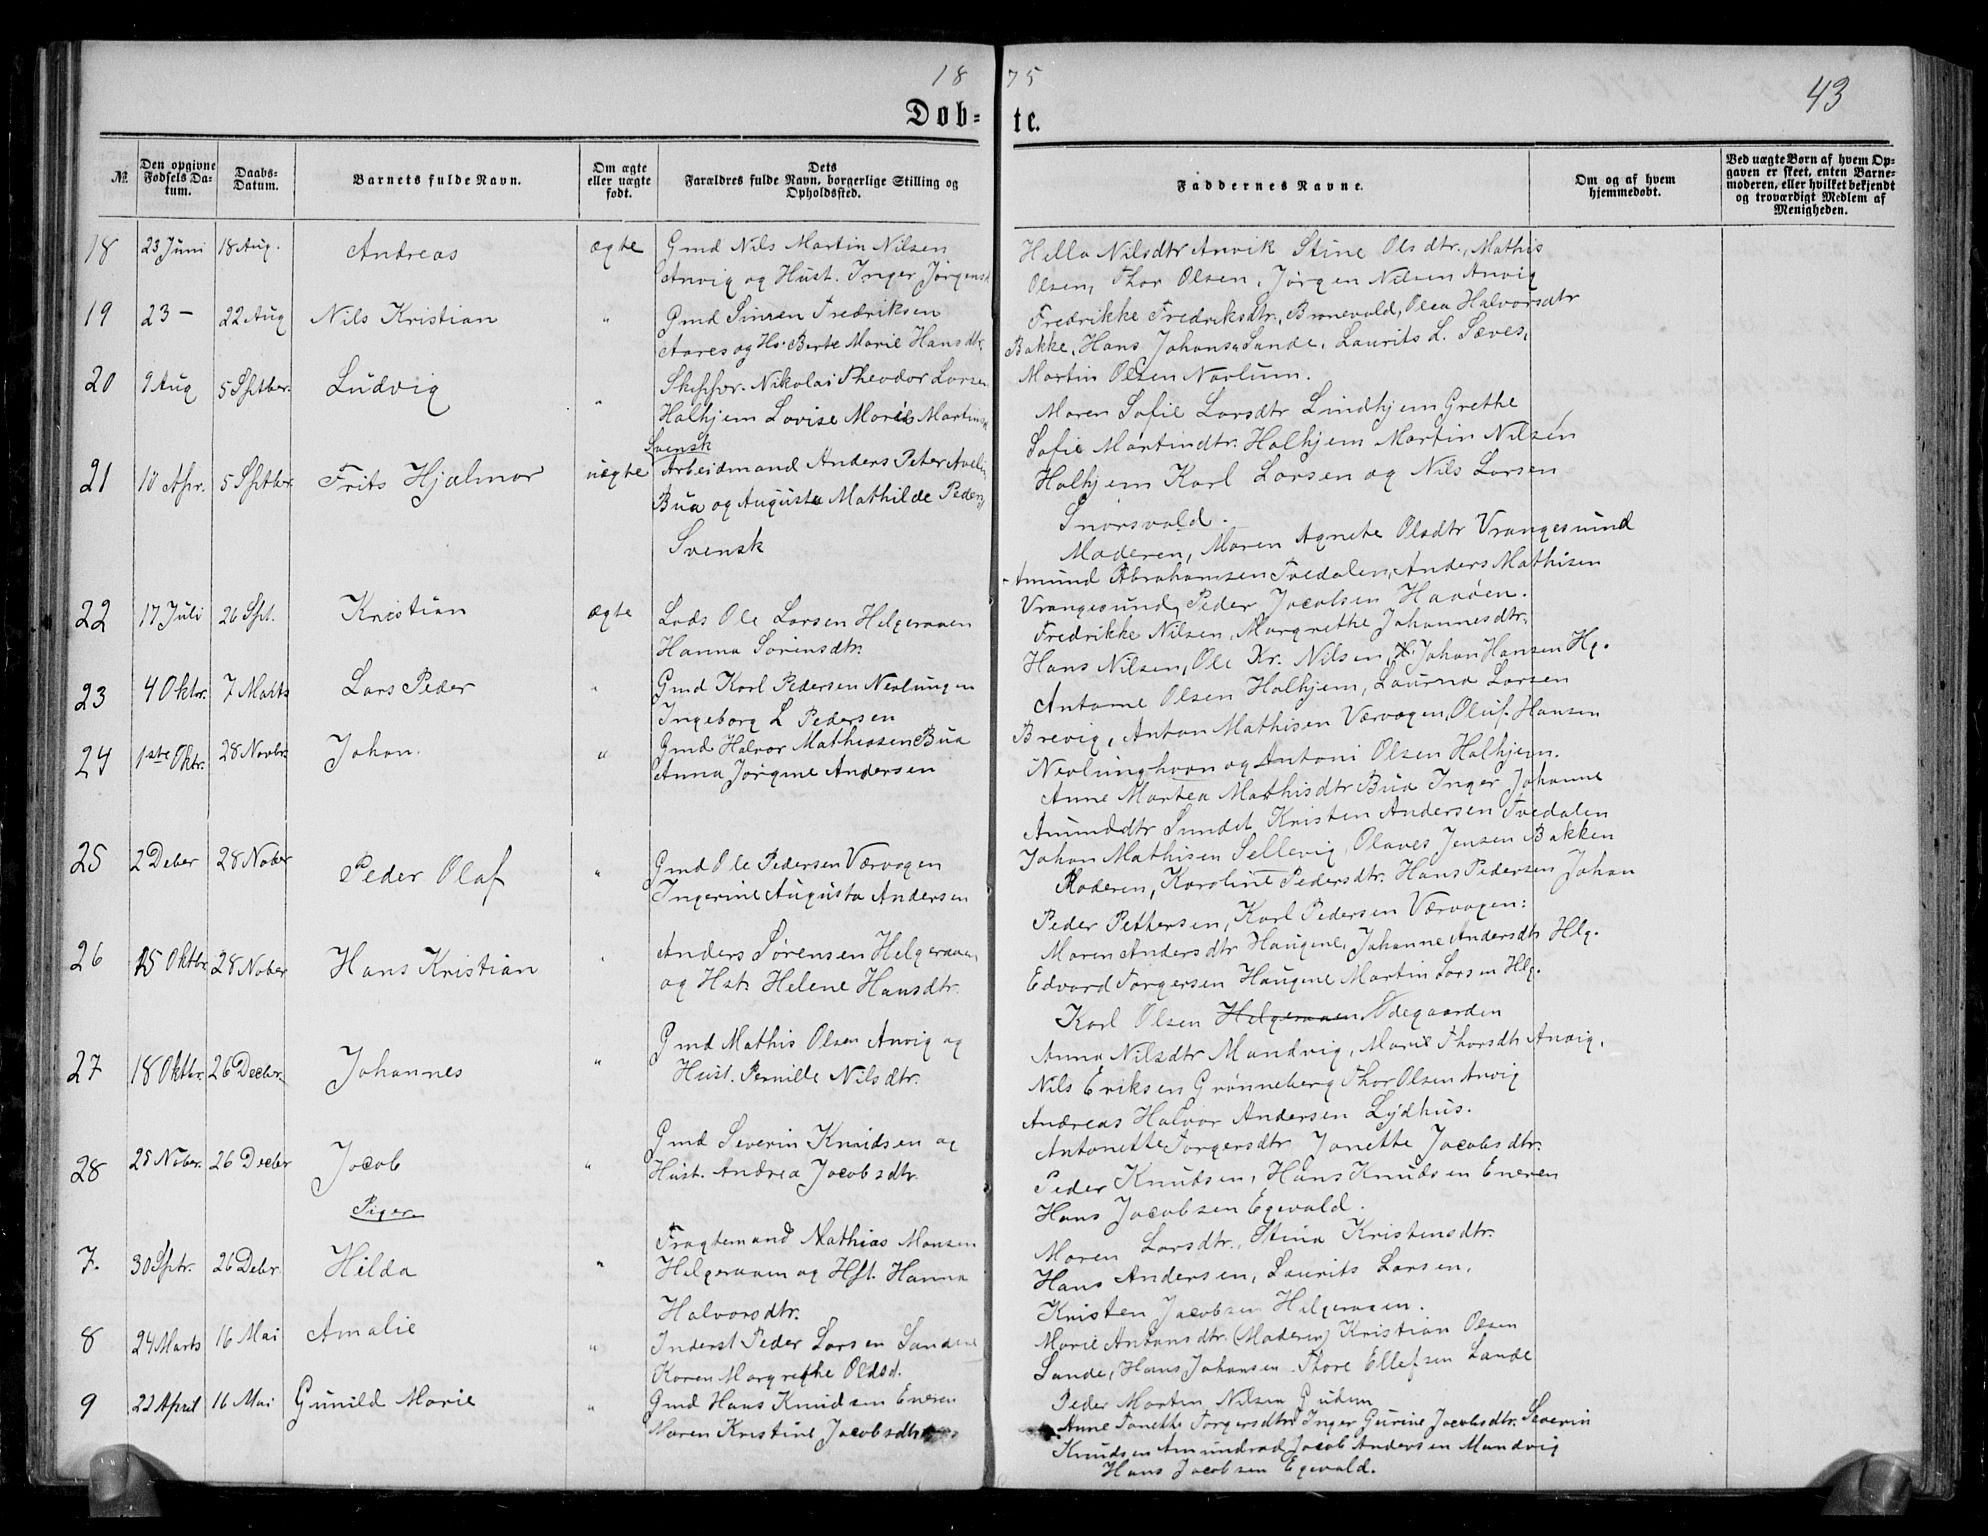 18 75
43
Døb- te.
№
Den opgivne Fødsels Datum.
Daabs-Datum.
Barnets fulde Navn.
Om ægte eller uægte født.
Dets Forældres fulde Navn, borgerlige Stilling og Opholdssted.
Faddernes Navne.
Om og af hvem hjemmedøbt.
Ved uægte Børn af hvem Opgaven er skeet, enten Barnemoderen, eller hvilket bekjendt og troværdigt Medlem af Menigheden.
18 23 Juni 18 Aug. Andreas ægte Gmd Nils Martin Nilsen
Anvig og Hust. Inger Jørgensd
19 23 – 22 Aug Nils Kristian " Gmd Simen Fredriksen
Aares og Hs. Berte Marie Hansdtr
20 9 Aug 5 Septber. Ludvig " Skipper. Nikolai Theodor Larsen
Halhjem Lovise Marie Martinsd
Svensk
21 10 Apr. 5 Septber Frits Hjalmar uægte Arbeidmand Anders Peter Avelin
Bua og Augusta Mathilde Peders
Svensk
22 17 Juli 26 Spt. Kristian ægte Lods Ole Larsen Helgeraaen
Hanna Sørensdtr.
23 4 Oktr. 7 Marts Lars Peder " Gmd Karl Pedersen Nevlungen
Ingeborg L Pedersen
24 1ste Oktr. 28 Novbr. Johan. " Gmd Halvor Mathiasen Bua
Anna Jørgine Andersen
25 2 Deber 28 Nober Peder Olaf " Gmd Ole Pedersen Værvagen
Ingerine Augusta Andersen
26 15 Oktbr 28 Nober Hans Kristian " Anders Sørensen Helgeraaen
og Hst. Helene Hansdtr.
27 18 Oktbr. 26 Decbr. Johannes " Gmd Mathis Olsen Anvig og
Hust. Pernille Nilsdtr.
28 25 Nober. 26 Decbr Jacob " Gmd Severin Knudsen og
Hust. Andrea Jacobsdtr.
Piger.
7. 30 Sptr. 26 Debr. Hilda " Fragtemand Mathias Monsen
Helgeraaen og Hst. Hanna
Halvorsdtr.
8 24 Marts 16 Mai Amalie " Inderst Peder Larsen Sandene
Karen Margrethe Olsd.
9 22 April 16 Mai Gunild Marie " Gmd Hans Knudsen Eneren
Maren Kristine Jacobsdtr
Hella Nilsdtr Anvik Stine Olsdtr., Mathis
Olsen, Thor Olsen, Jørgen Nilsen Anvig
Fredrikke Fredriksdtr, Bronevald, Olea Halvorsdtr
Bakke, Hans Johans. Sande, Laurits L. Sæves,
Martin Olsen Navlum.
Maren Sofie Larsdtr Lindhjem Grethe
Sofie Martindtr. Halhjem Martin Nilsen
Halhjem Karl Larsen og Nils Larsen
Snorsvald.
Moderen, Maren Agnete Olsdtr Vrangesund
Amund Abrahamsen Tvedalen, Anders Mathisen
Vrangesund, Peder Jacobsen Haaøen.
Fredrikke Nilsen, Margrethe Johannesdtr,
Hans Nilsen, Ole Kr. Nilsen, Johan Hansen Hg.
Antone Olsen Halhjem, Laurna Larsen
Brevig, Anton Mathisen Værvagen, Oluf Hansen
Nevlunghavn og Antoni Olsen Halhjem.
Anne Martea Mathisdtr Bua Inger Johanne
Amunddtr Sundet Kristen Andersen Tvedalen
Johan Mathisen Sellevig, Olaves Jensen Bakken
Moderen, Karoline Pedersdtr. Hans Pedersen Johan
Peder Pettersen, Karl Pedersen Værvagen:
Maren Andersdtr Haugene, Johanne Andersdtr Hlg.
Edvard Torgersen Haugene Martin Larsen Hlg.
Karl Olsen Helgeraaen Ødegaarden
Anna Nilsdtr Mandvig, Marie Thorsdtr Anvig.
Nils Eriksen Grønneberg Thor Olsen Anvig
Andreas Halvor Andersen Lydhus.
Antonette Torgersdtr Janette Jacobsdtr.
Peder Knudsen, Hans Knudsen Eneren
Hans Jacobsen Egevald.
Maren Larsdtr., Stina Kristensdtr.
Hans Andersen, Laurits Larsen,
Kristen Jacobsen Helgeraaen.
Marie Antonsdtr. (Moderen) Kristian Olsen
Sande, Hans Johansen Thore Ellefsen Sande
Peder Morten Nilsen Gudem
Anne Tonette Torgersdtr Inger Gurine Jacobsdtr. Severin
Knudsen Amundrød Jacob Andersen Mandvig
Hans Jacobsen Egevald.